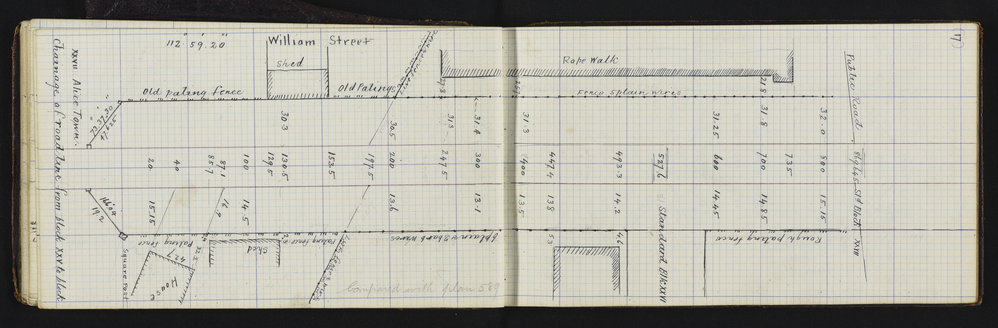 17
112 59.20
William Street
shed
Rope Walk
Old paling fence
Old Palings
Fence 5 plain wires
Public Road
XXVII Alice Town.
Chainage of road line from block XXVI to block
73.37.30
47.625
30.3
30.5
31.5
31.4
31.3
31.25
31.8
32.0
20
40
85.7
87.1
100
129.5
130.5
153.5
197.5
200
247.5
300
400
447.4
493.3
527.6
600
700
735
800
15.15
16.9
14.5
13.6
13.1
13.5
13.8
14.2
14.45
14.85
15.15
19.2
Square post
Paling fence
42.7
House
shed
Paling fence
6 plain & 3 barb wires
5.3
4.6
Standard Blk XXVI
Rough paling fence
Compared with plan 589